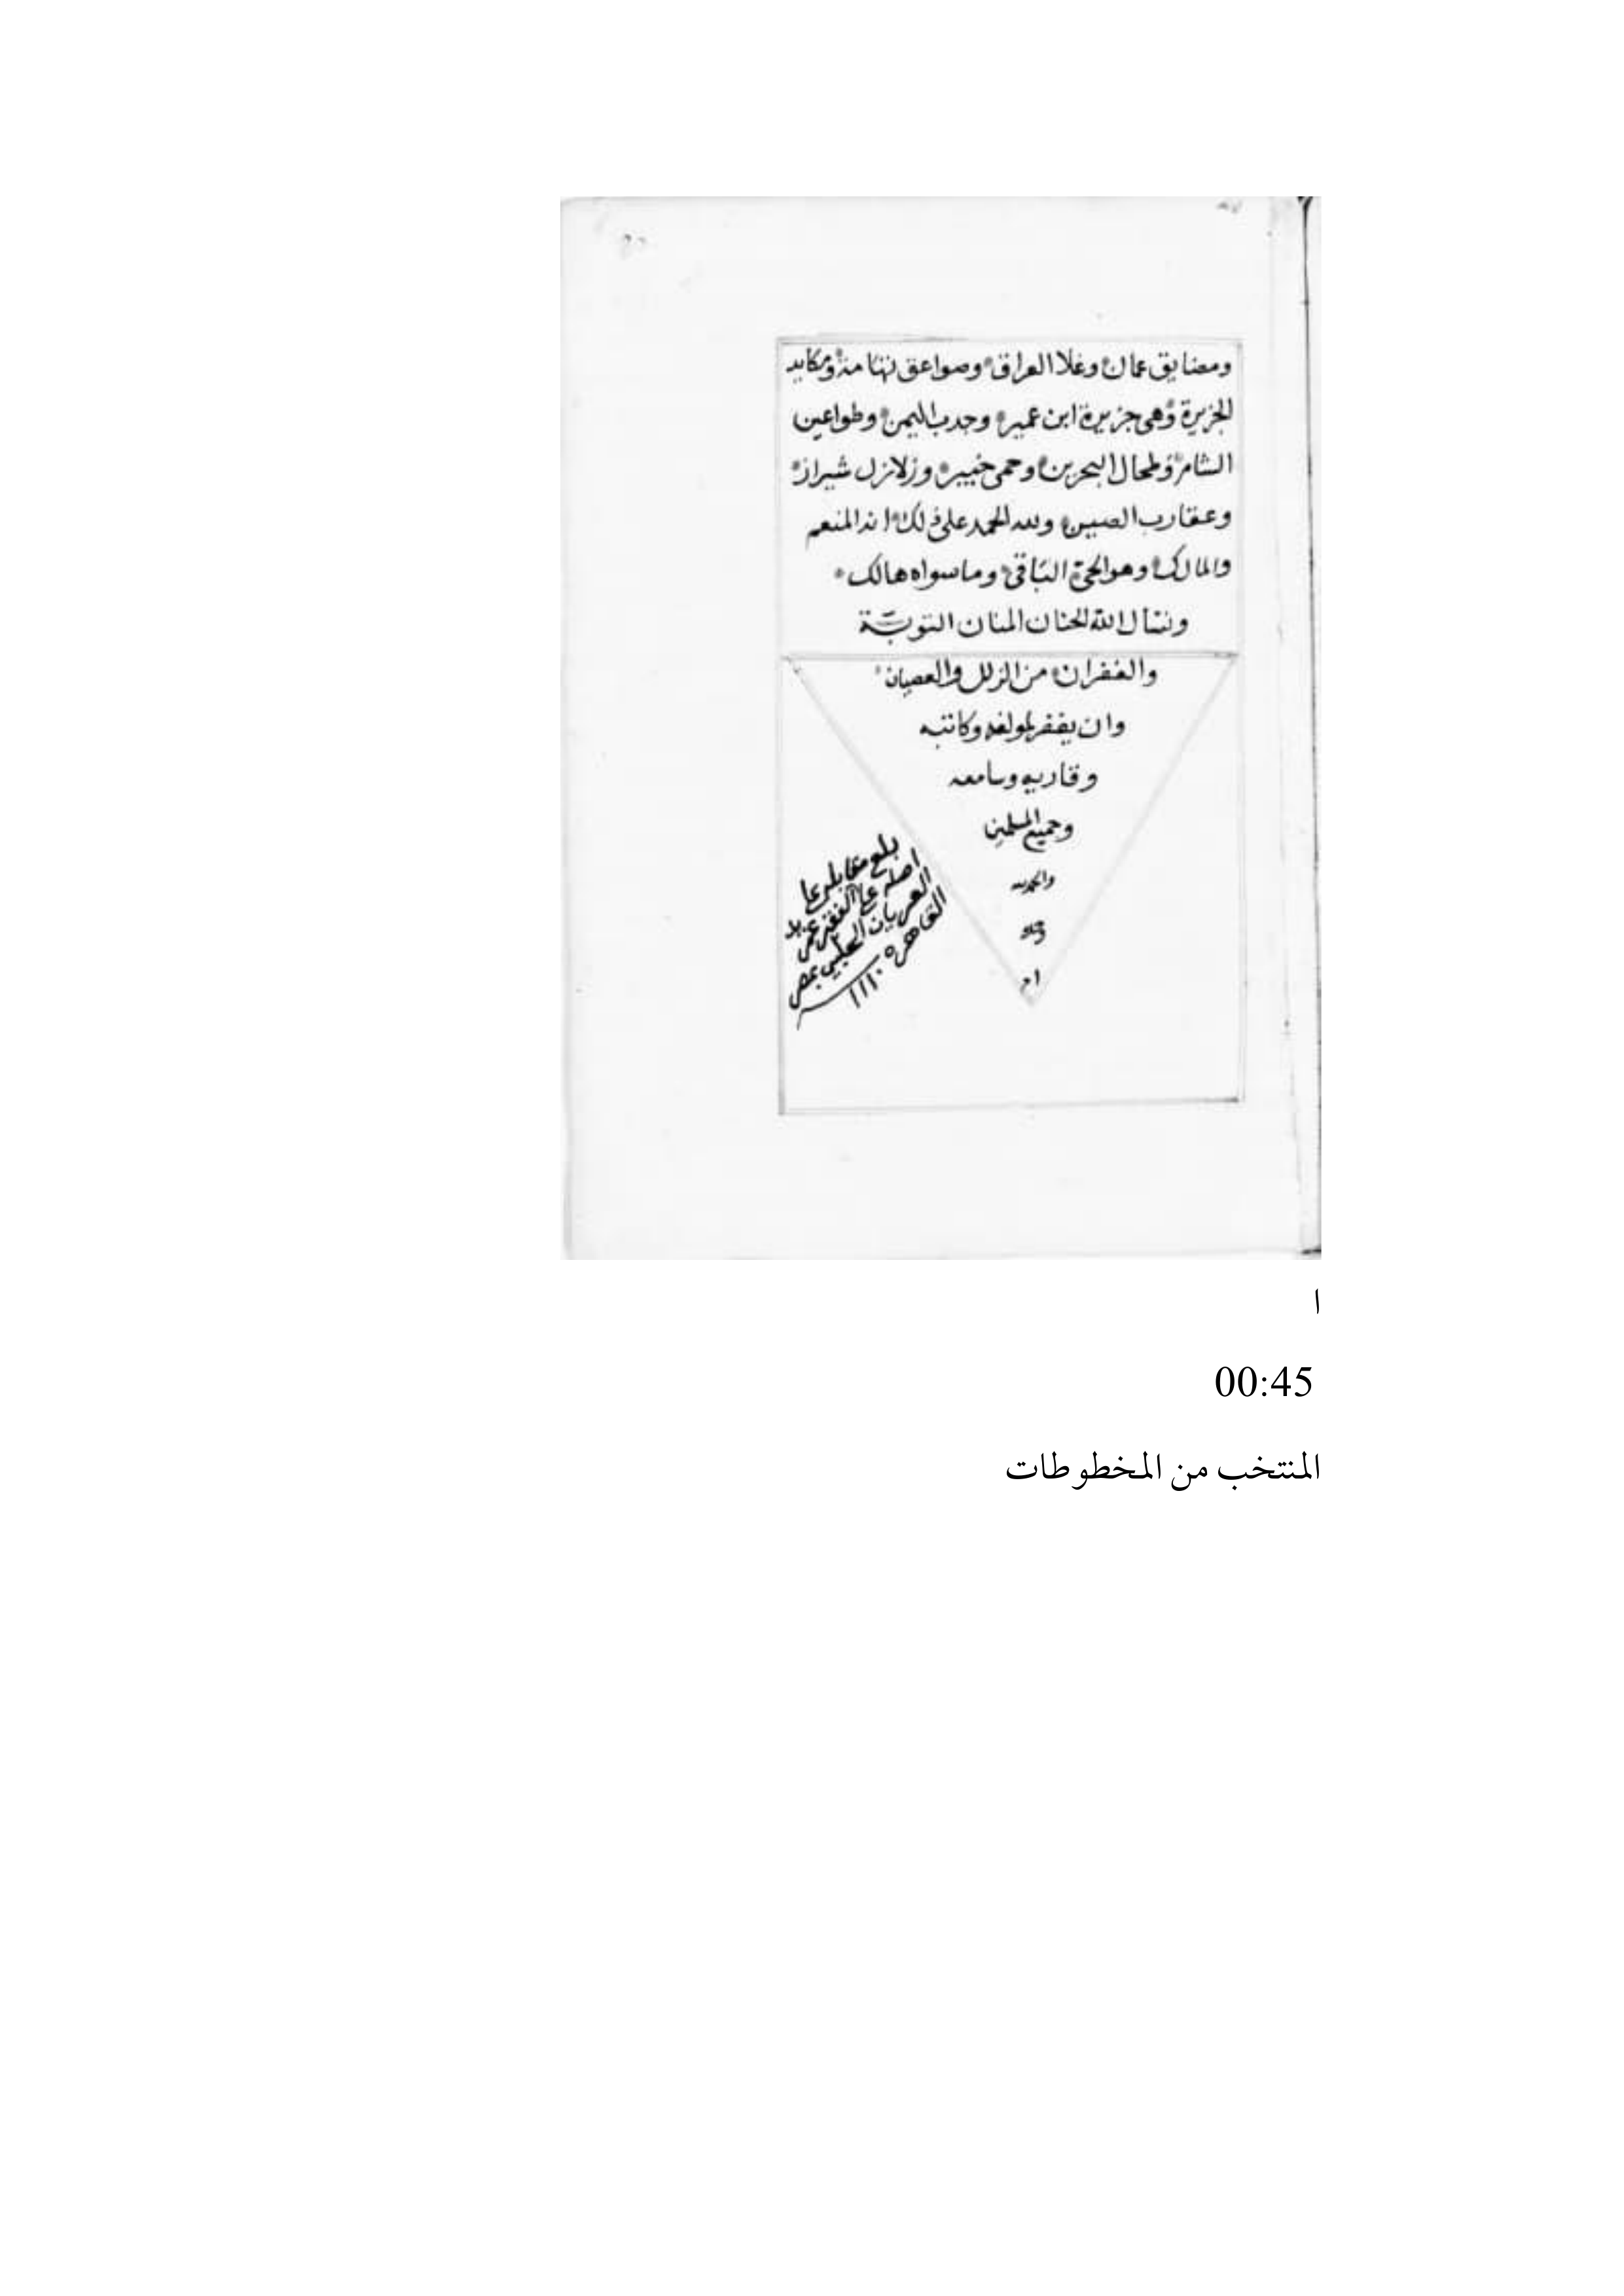 ومضايق عمان وغلا العراق وصواعق تهامة ومكايد
الجزيرة وهى جزيرة ابن عمير وجدب اليمن وطواعين
الشام وطحال البحرين وحمى خيبر وزلازل شيراز
وعقارب الصيبن ولله الحمد على ذلك انه المنعم
والمالك وهو الحي الباقي وما سواه هالك
ونسأل الله الحنان المنان التوبة
والغفران من الزلل والعصيان
وان يغفر لمولفه وكاتبه
وقاريه وسامعه
وجميع المسلمين
والحمد لله
وحده
ام
بلغ مقابلة على
اصله على الفقير عمر بد
العريان الحلبي بمصر
القاهرة
١١١٠
ا
00:45
المنتخب من المخطوطات